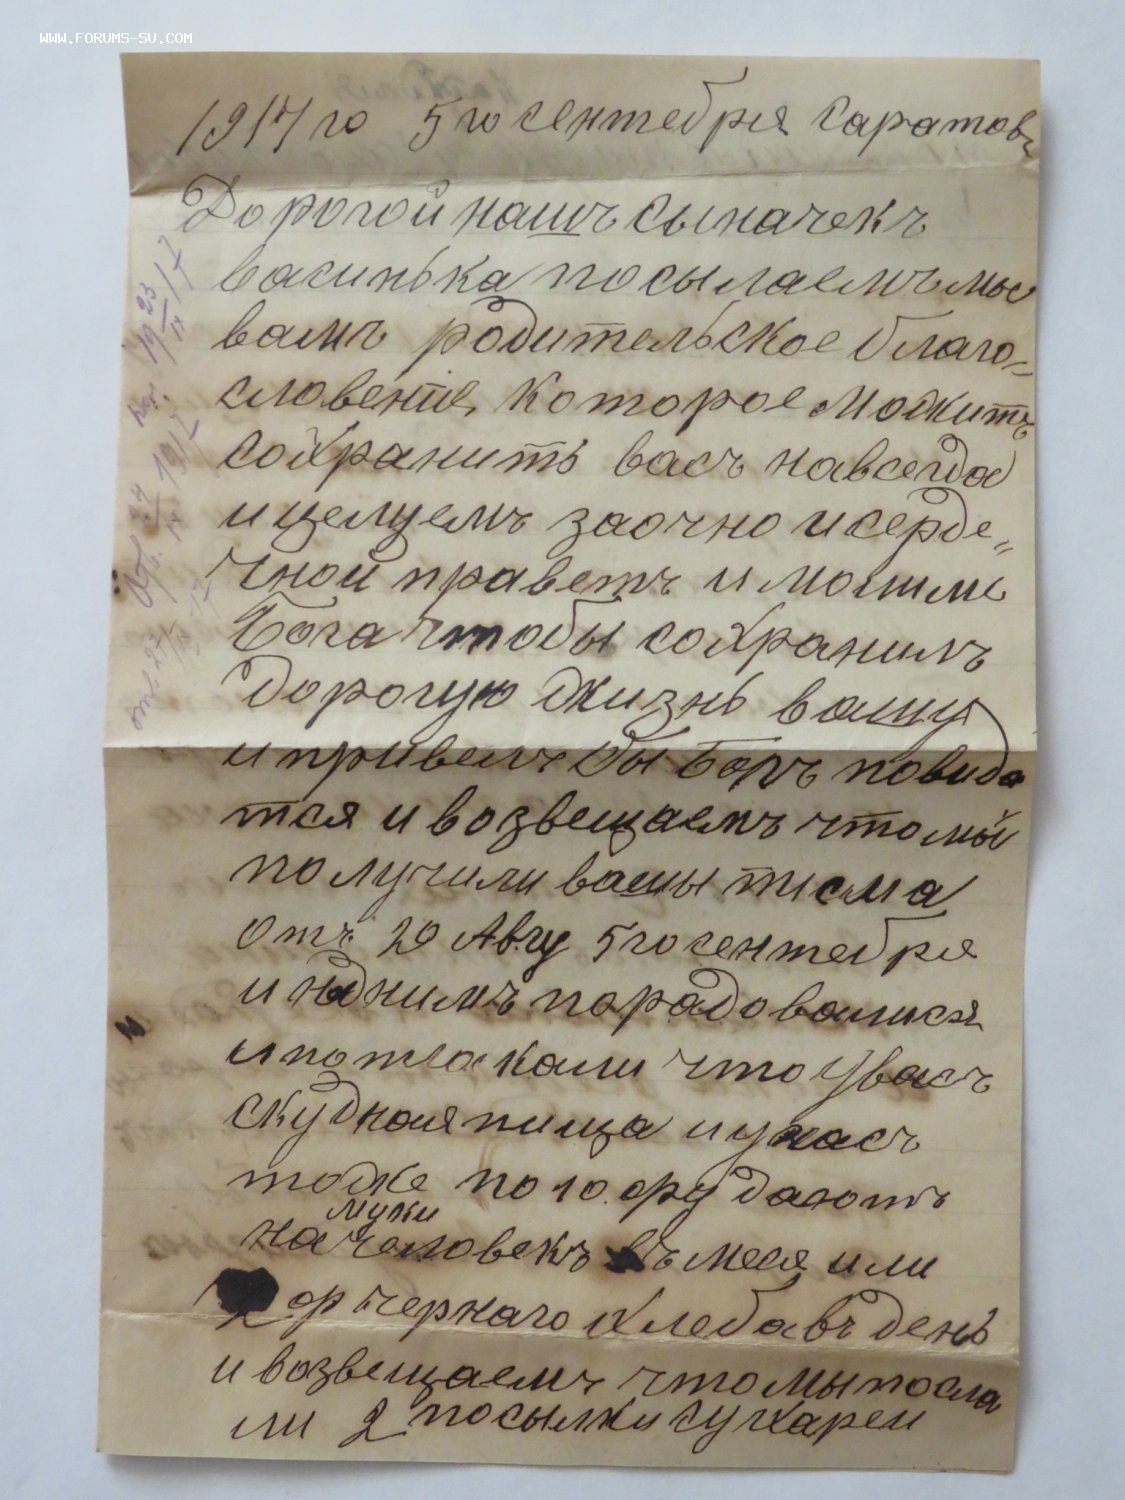 WWW.FORUMS-SU.COM
1917го 5го сентебря Саратовъ
Дорогой нашъ сыначекъ
Васинька посылаемъ мы
вамъ родительское благо=
словение, которое можитъ
сохранить васъ навсегда
и целуемъ заочно и серде=
чной праветъ и молимъ
Бога чтобы сохранилъ
дорогую жизнь вашу
и привелъ бы Богъ повида
тся и возвещаемъ что мы
получили вашы писма
отъ 29 Авгу 5го сентебря
и надними порадовалися
и поплакали что у васъ
скудная пища и у насъ
тоже по 10. фу даютъ
муки
на человекъ въ меся или
фр чернаго хлеба въ день
и возвещаемъ что мы посла
ли 2 посылки сухареи